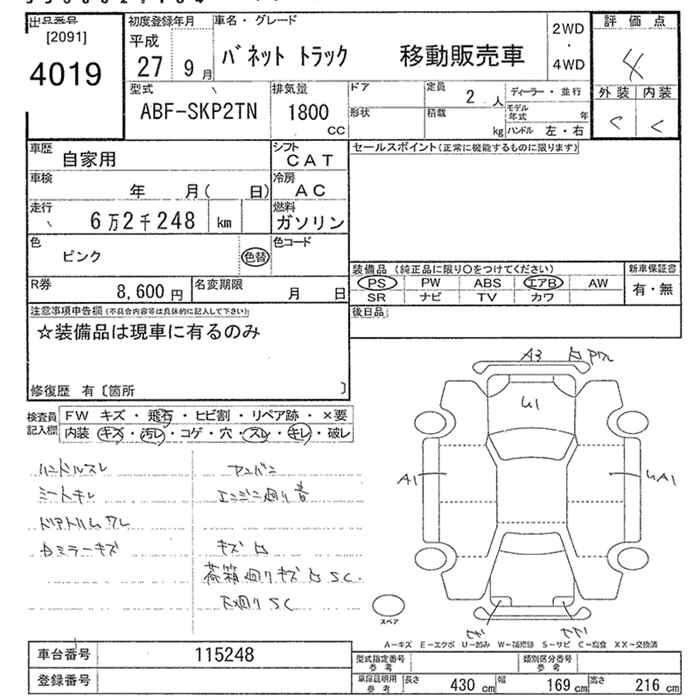 出品番号
[2091]
4019
初度登録年月
平成
27 9月
車名・グレード
バネット トラック 移動販売車
2WD
・
4WD
評価点
4
外装 内装
型式
ABF-SKP2TN
排気量
1800
CC
ドア
形状
定員
2人
積載
kg
ディーラー・並行
モデル年式 年
ハンドル 左・右
車歴
自家用
シフト
CAT
車検
年 月( 日)
冷房
AC
走行
6万2千248 km
燃料
ガソリン
色
ピンク
色替
色コード
R券
8,600円
名変期限
月 日
セールスポイント(正常に機能するものに限ります)
装備品 (純正品に限り○をつけてください)
PS PW ABS エアB AW
SR ナビ TV カワ
新車保証書
有・無
後日品
注意事項申告欄(不具合内容等は具体的に記入して下さい)
☆装備品は現車に有るのみ
修復歴 有〔箇所 〕
検査員記入欄
FW キズ・飛石・ヒビ割・リペア跡・×要
内装 キズ・汚レ・コゲ・穴・スレ・キレ・破レ
ハンドルスレ
シートキレ
アンバン
エンジン廻り音
キズ凹
荷箱廻りキズ凹SC.
下廻りSC
A3
U1
A1
UA1
スペア
A－キズ E－エクボ U－凹み W－補修跡 S－サビ C－腐食 XX－交換済
車台番号
115248
登録番号
型式指定番号
参考
類別区分番号
参考
車庫証明用
参考
長さ 430cm
幅 169cm
高さ 216cm